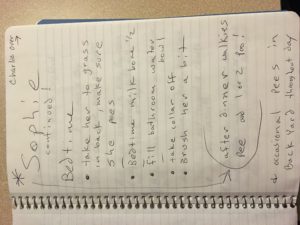 Charlie over →
* Sophie
continued!
Bedtime
• take her to grass
in back, make sure
she pees
• Bedtime milk bone 1/2
• fill bathroom water
bowl!
• take collar off
• Brush her a bit
after dinner walkies
Pee and 1 or 2 poo!
& occasional pees in
Back Yard throughout day